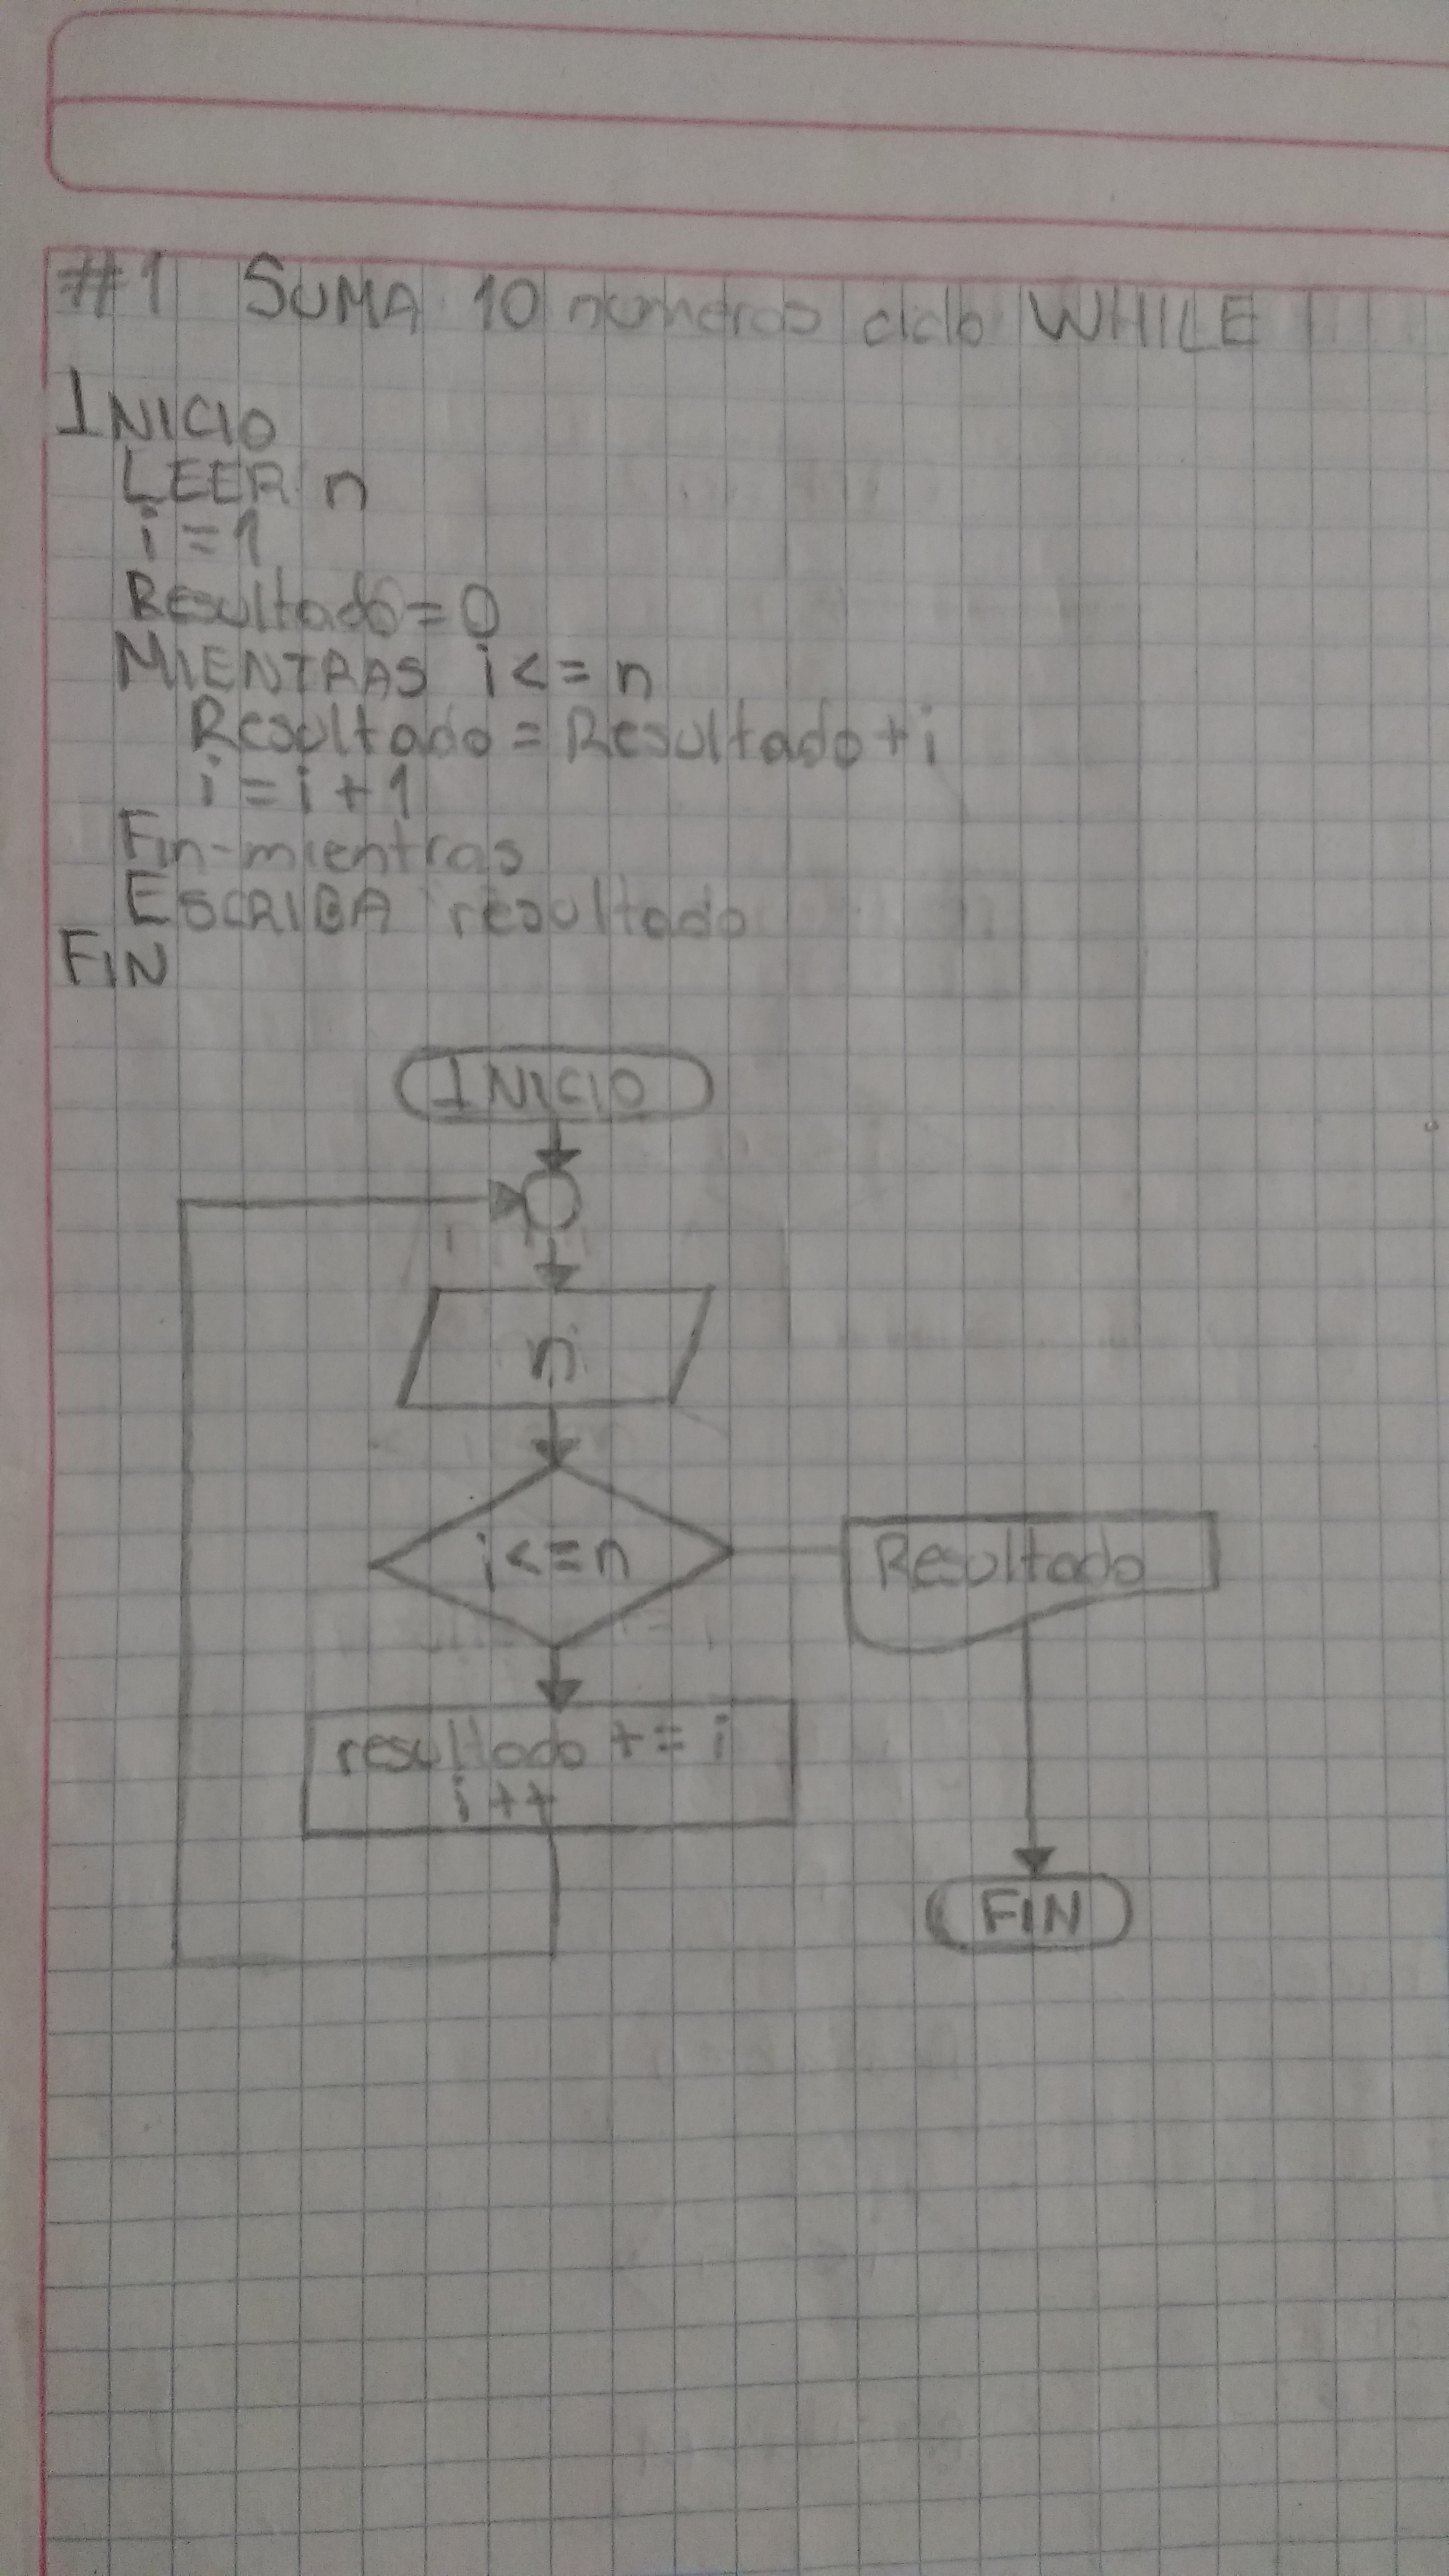 #1 SUMA 10 números ciclo WHILE
INICIO
LEER n
i = 1
Resultado = 0
MIENTRAS i <= n
Resultado = Resultado + i
i = i + 1
Fin-mientras
ESCRIBA resultado
FIN
INICIO
n
i <= n
Resultado
resultado += i
i++
FIN